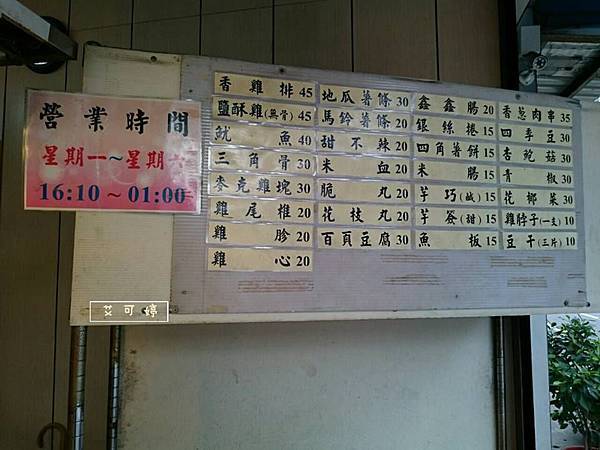 營業時間
星期一~星期六
16:10~01:00
香雞排45
鹽酥雞(無骨)45
魷魚40
三角骨30
麥克雞塊30
雞尾椎20
雞胗20
雞心20
地瓜薯條30
馬鈴薯條20
甜不辣20
米血20
脆丸20
花枝丸20
百頁豆腐30
鑫鑫腸20
銀絲捲15
四角薯餅15
米腸15
芋巧(鹹)15
芋簽(甜)15
魚板15
香蔥肉串35
四季豆30
杏鮑菇30
青椒30
花椰菜30
雞脖子(一支)10
豆干(三片)10
艾可婷